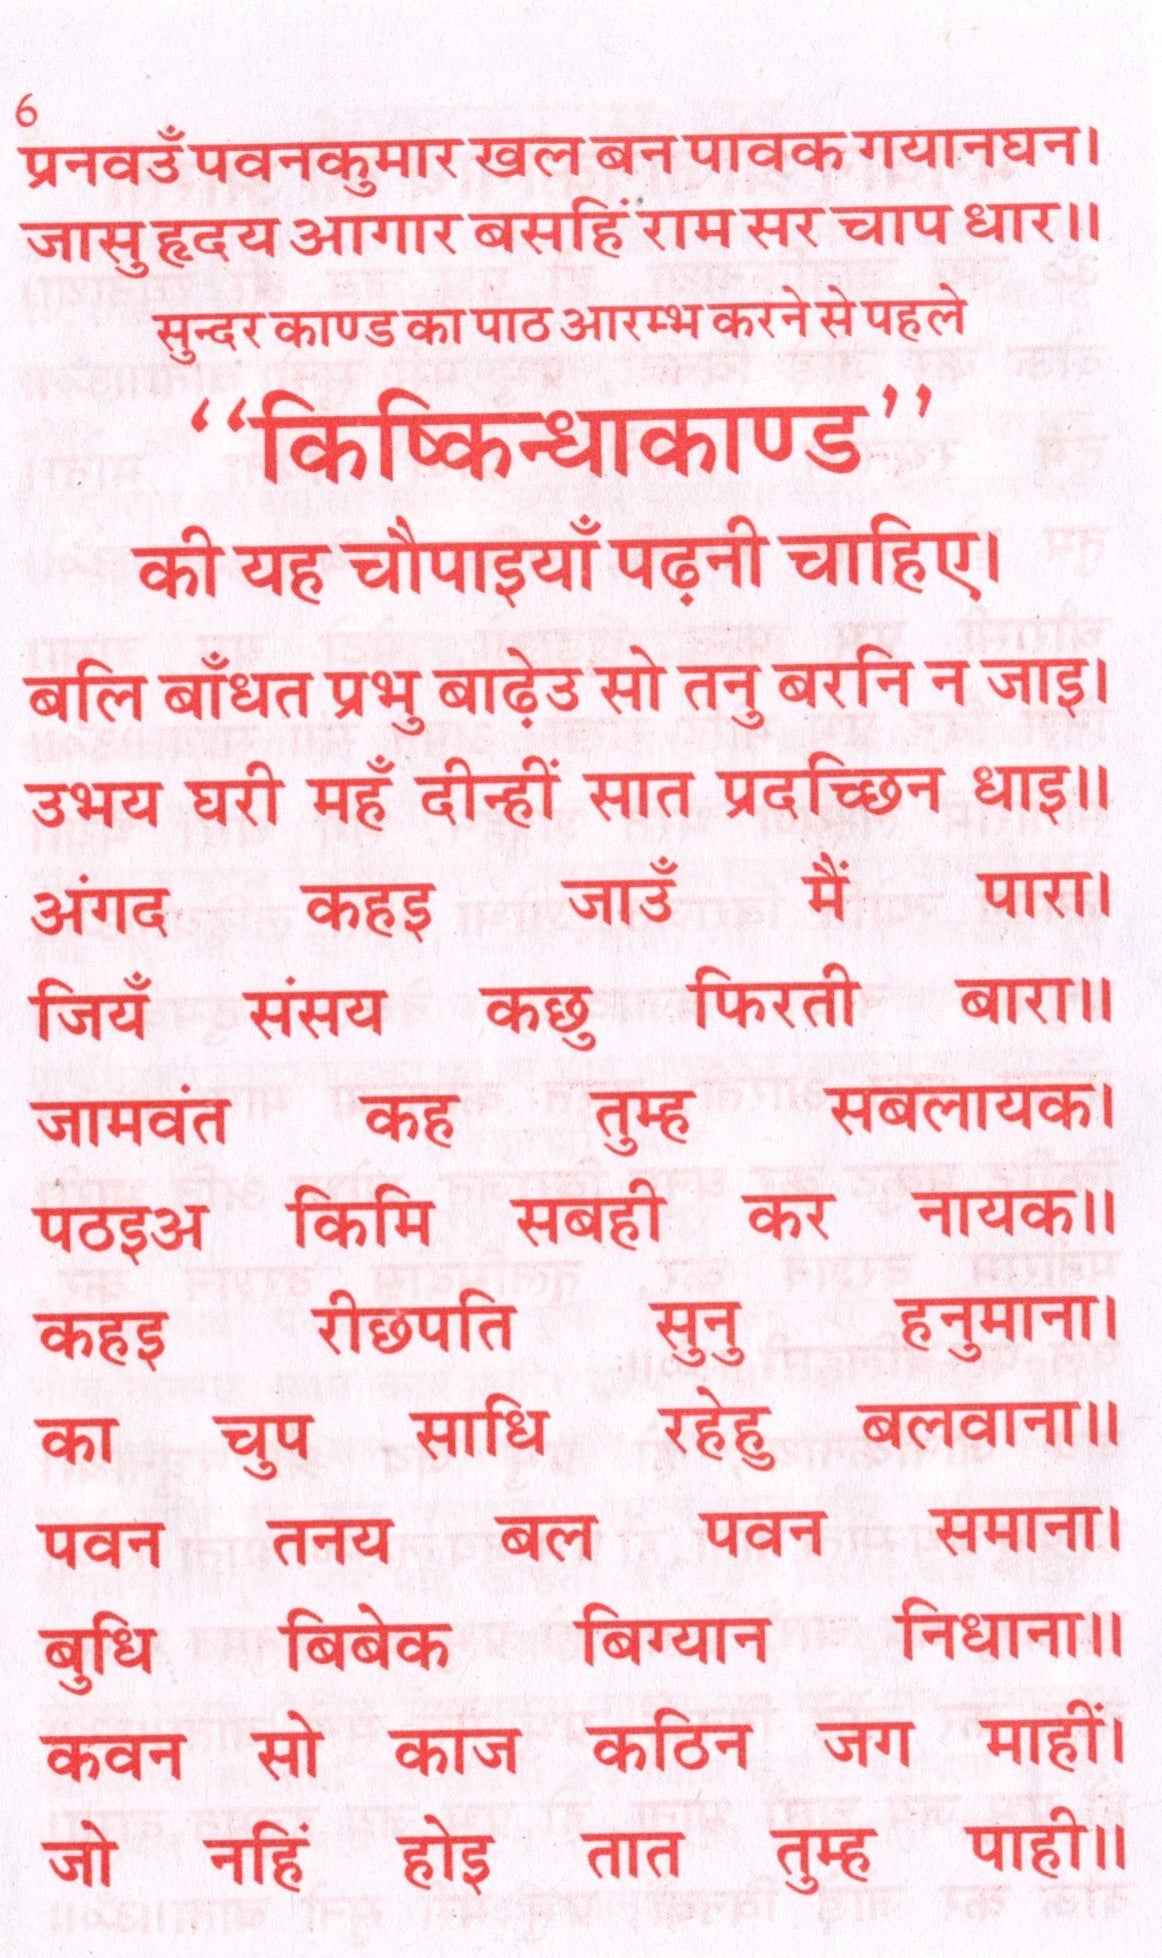 6
प्रनवउँ पवनकुमार खल बन पावक गयानघन।
जासु हृदय आगार बसहिं राम सर चाप धार॥
सुन्दर काण्ड का पाठ आरम्भ करने से पहले
‘‘किष्किन्धाकाण्ड’’
की यह चौपाइयाँ पढ़नी चाहिए।
बलि बाँधत प्रभु बाढ़ेउ सो तनु बरनि न जाइ।
उभय घरी महँ दीन्हीं सात प्रदच्छिन धाइ॥
अंगद कहइ जाउँ मैं पारा।
जियँ संसय कछु फिरती बारा॥
जामवंत कह तुम्ह सबलायक।
पठइअ किमि सबही कर नायक॥
कहइ रीछपति सुनु हनुमाना।
का चुप साधि रहेहु बलवाना॥
पवन तनय बल पवन समाना।
बुधि बिबेक बिग्यान निधाना॥
कवन सो काज कठिन जग माहीं।
जो नहिं होइ तात तुम्ह पाही॥